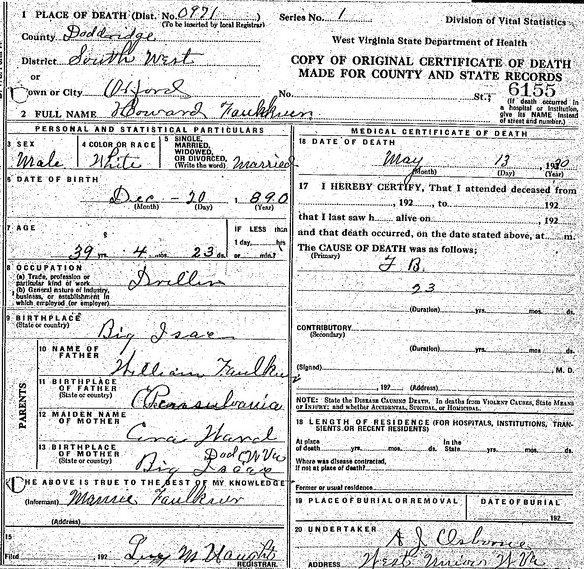 1 PLACE OF DEATH (Dist. No. 0971)
(To be inserted by local Registrar)
Series No. 1
Division of Vital Statistics
County Doddridge
West Virginia State Department of Health
District South West
COPY OF ORIGINAL CERTIFICATE OF DEATH
MADE FOR COUNTY AND STATE RECORDS
or
Town or City Oxford
No. St.; 6155
(If death occurred in a hospital or institution, give its NAME instead of street and number.)
2 FULL NAME Howard Faulkner
PERSONAL AND STATISTICAL PARTICULARS
3 SEX
Male
4 COLOR OR RACE
White
5 SINGLE, MARRIED, WIDOWED, OR DIVORCED.
(Write the word) Married
6 DATE OF BIRTH
Dec - 20 , 1890
(Month) (Day) (Year)
7 AGE
39 yrs. 4 mos. 23 ds.
IF LESS than
1 day, hrs
or min.?
8 OCCUPATION
(a) Trade, profession or particular kind of work
(b) General nature of industry, business, or establishment in which employed (or employer)
Driller
9 BIRTHPLACE
(State or country)
Big Isaac
PARENTS
10 NAME OF FATHER
William Faulkner
11 BIRTHPLACE OF FATHER
(State or country)
Pennsylvania
12 MAIDEN NAME OF MOTHER
Ward
13 BIRTHPLACE OF MOTHER
(State or country)
Big Isaac Dod C W Va
THE ABOVE IS TRUE TO THE BEST OF MY KNOWLEDGE
(Informant) Faulkner
(Address)
15
Filed , 192
REGISTRAR.
MEDICAL CERTIFICATE OF DEATH
16 DATE OF DEATH
May 13 , 1930
(Month) (Day) (Year)
17 I HEREBY CERTIFY, That I attended deceased from
, 192 , to , 192
that I last saw h alive on , 192
and that death occurred, on the date stated above, at m.
The CAUSE OF DEATH was as follows;
(Primary)
T B.
23
(Duration) yrs. mos. ds.
CONTRIBUTORY
(Secondary)
(Duration) yrs. mos. ds.
(Signed) , M. D.
, 192 (Address)
NOTE: State the DISEASE CAUSING DEATH. In deaths from VIOLENT CAUSES, State MEANS OF INJURY; and whether ACCIDENTAL, SUICIDAL, or HOMICIDAL.
18 LENGTH OF RESIDENCE (FOR HOSPITALS, INSTITUTIONS, TRANSIENTS OR RECENT RESIDENTS)
At place of death yrs. mos. ds. In the State yrs. mos. ds.
Where was disease contracted, if not at place of death?
Former or usual residence
19 PLACE OF BURIAL OR REMOVAL
DATE OF BURIAL
, 192
20 UNDERTAKER
A J Osborne
ADDRESS West Union W Va